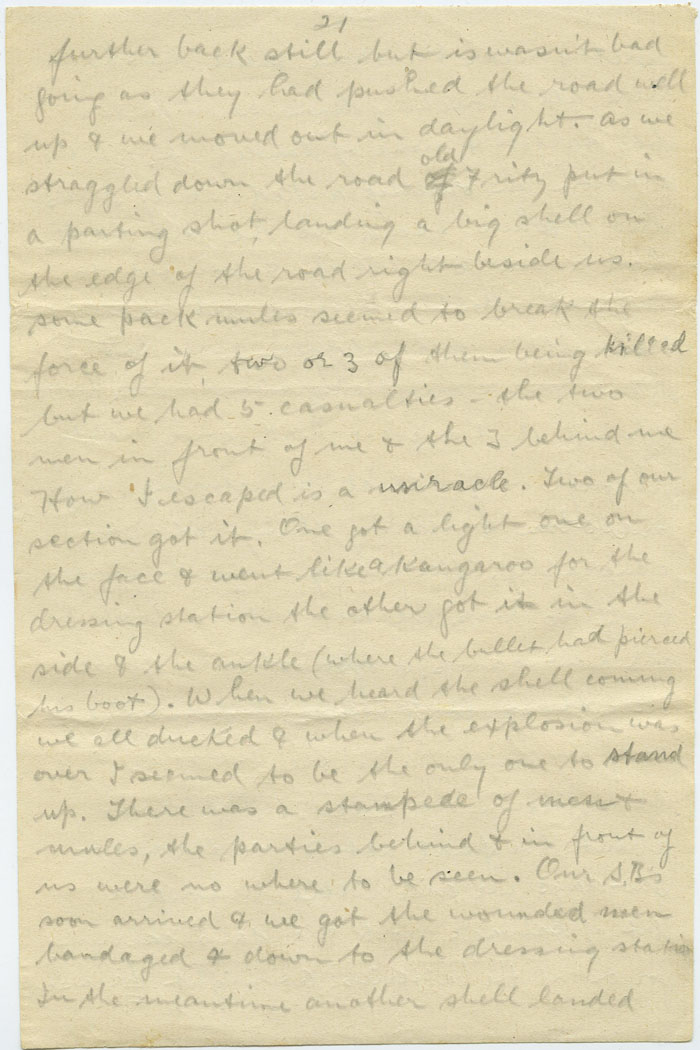 21
further back still but is wasn't bad
going as they had pushed the road well
up & we moved out in daylight. As we
straggled down the road old Fritz put in
a parting shot, landing a big shell on
the edge of the road right beside us.
some pack mules seemed to break the
force of it, two or 3 of them being killed
but we had 5 casualties – the two
men in front of me & the 3 behind me
How I escaped is a miracle. Two of our
section got it. One got a light one on
the face & went like a Kangaroo for the
dressing station the other got it in the
side & the ankle (where the bullet had pierced
his boot). When we heard the shell coming
we all ducked & when the explosion was
over I seemed to be the only one to stand
up. There was a stampede of men &
mules, the parties behind & in front of
us were no where to be seen. Our S.B's
soon arrived & we got the wounded men
bandaged & down to the dressing station
In the meantime another shell landed